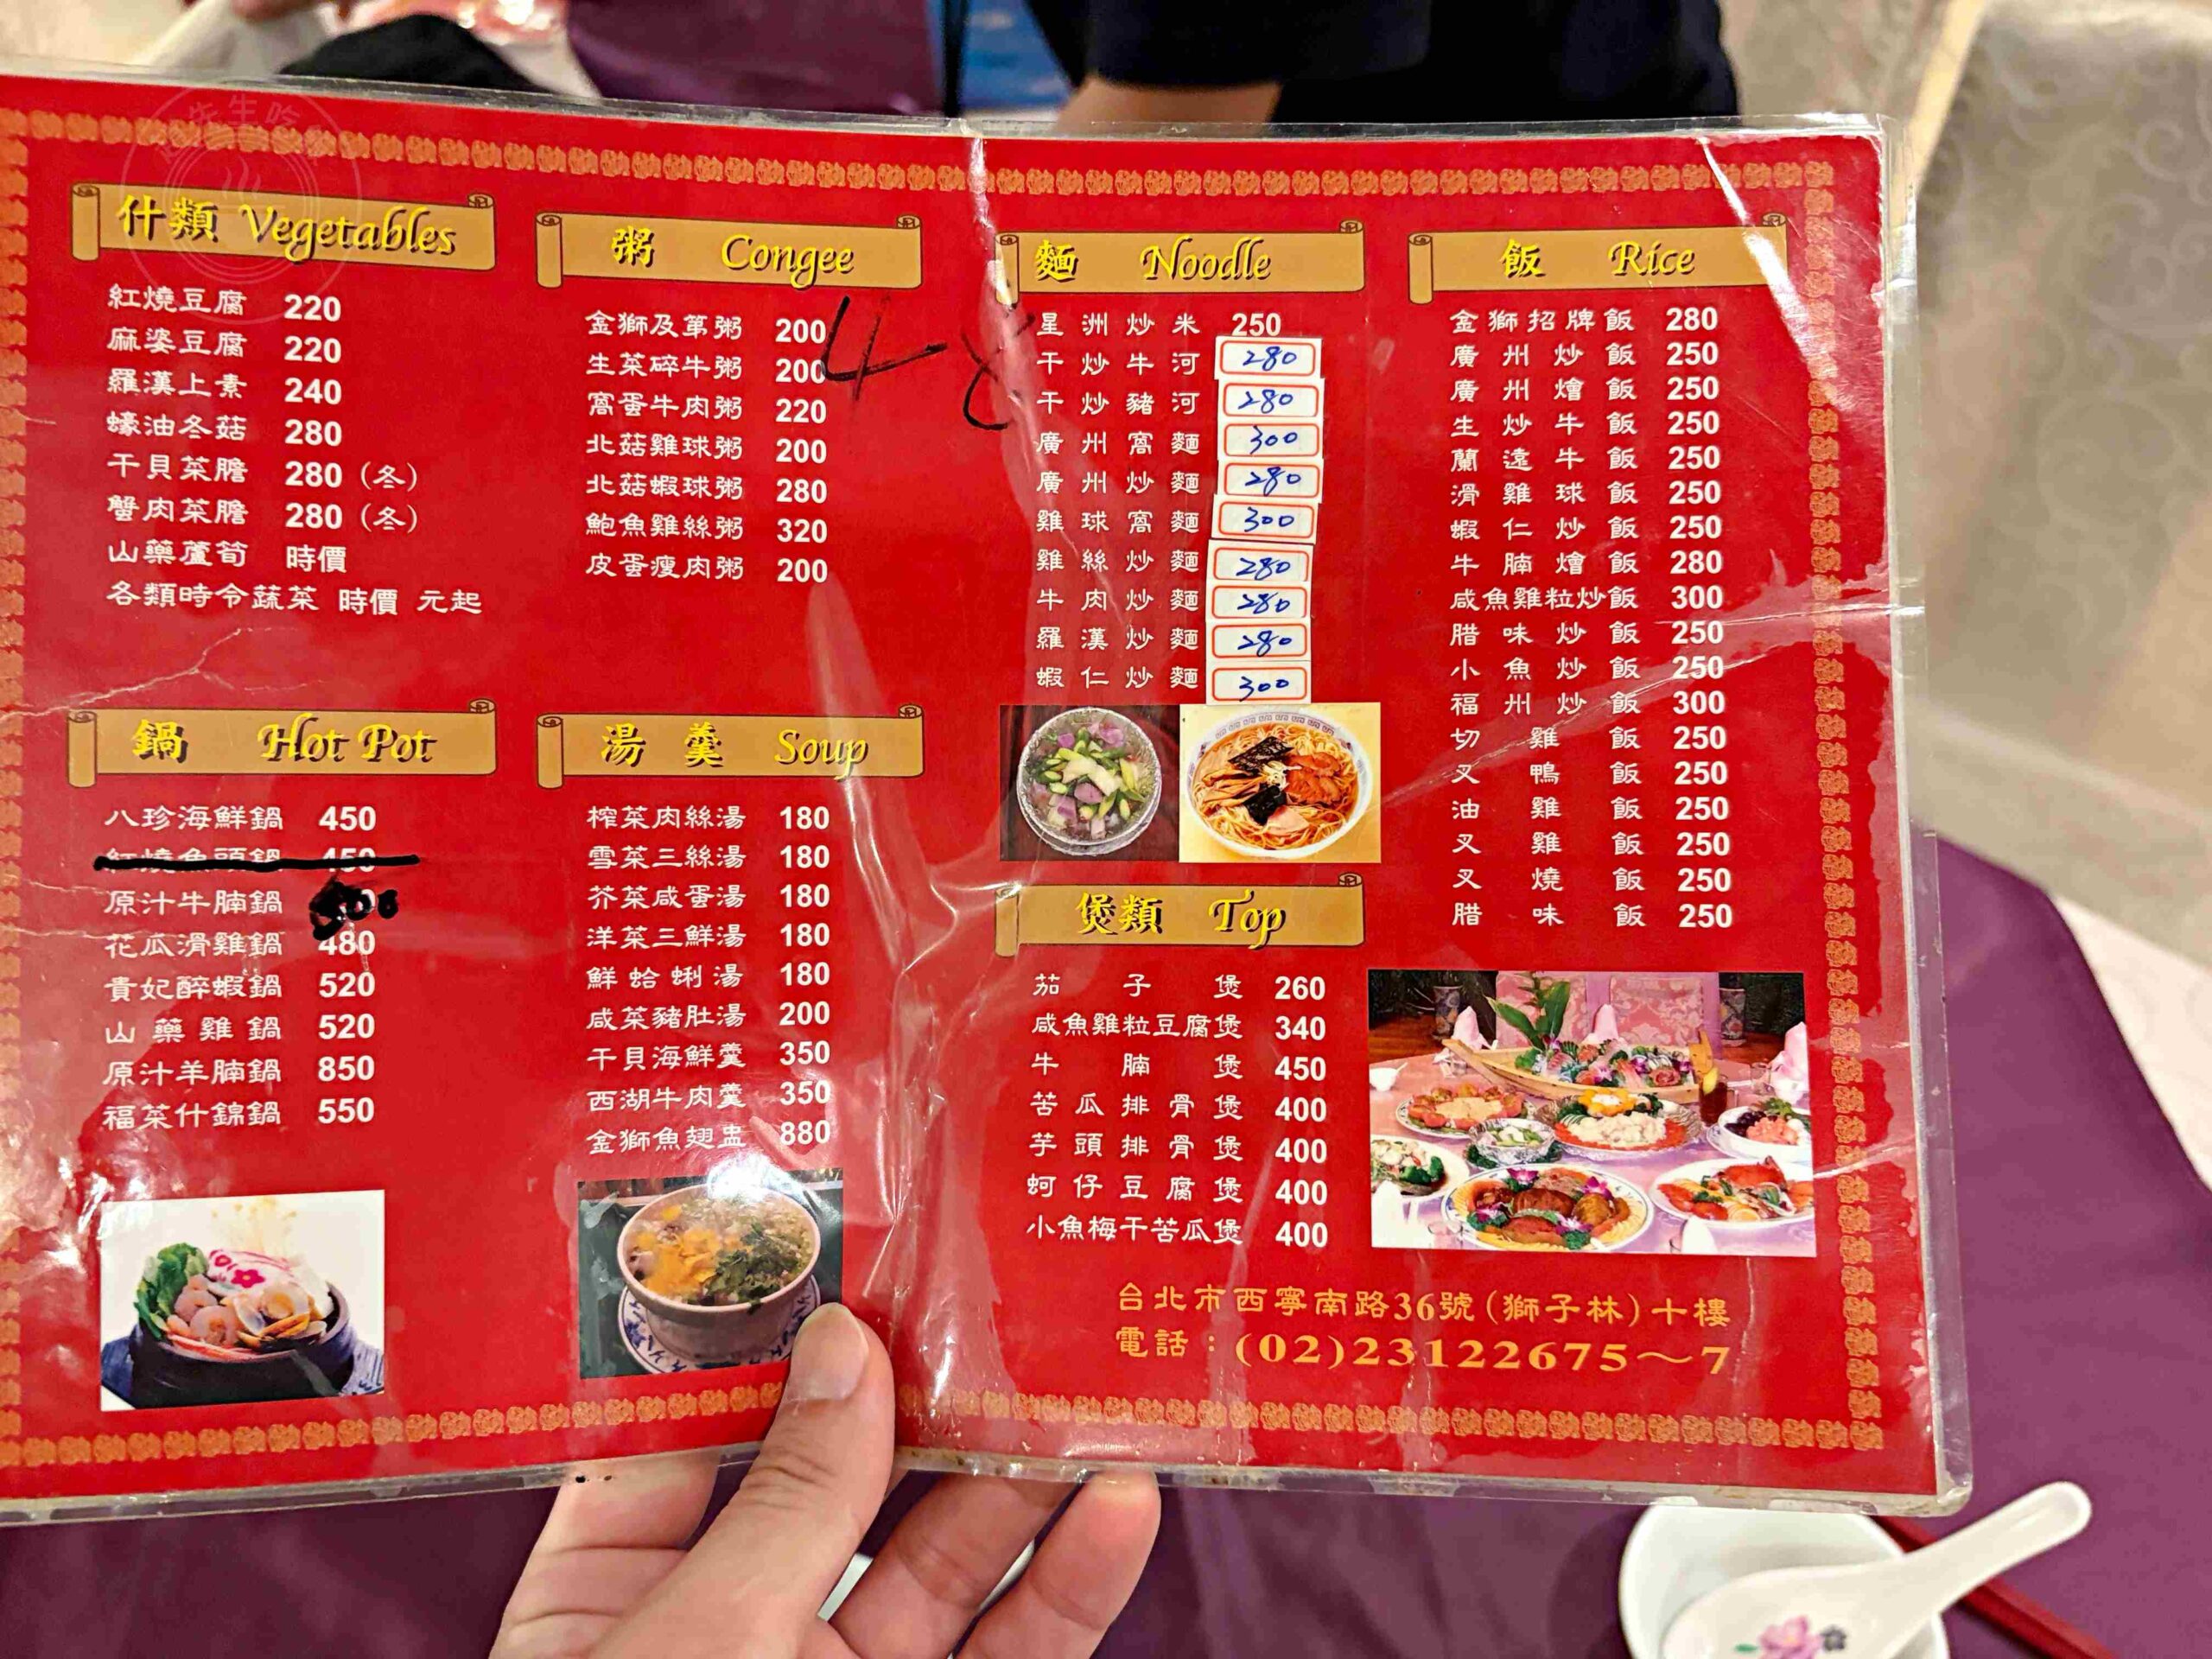 什類 Vegetables
紅燒豆腐 220
麻婆豆腐 220
羅漢上素 240
蠔油冬菇 280
干貝菜膽 280 (冬)
蟹肉菜膽 280 (冬)
山藥蘆筍 時價
各類時令蔬菜 時價 元起
粥 Congee
金獅及第粥 200
生菜碎牛粥 200
窩蛋牛肉粥 220
北菇雞球粥 200
北菇蝦球粥 280
鮑魚雞絲粥 320
皮蛋瘦肉粥 200
48
鍋 Hot Pot
八珍海鮮鍋 450
紅燒魚頭鍋 450
原汁牛腩鍋 500
花瓜滑雞鍋 480
貴妃醉蝦鍋 520
山藥雞鍋 520
原汁羊腩鍋 850
福菜什錦鍋 550
湯羹 Soup
榨菜肉絲湯 180
雪菜三絲湯 180
芥菜咸蛋湯 180
洋菜三鮮湯 180
鮮蛤蜊湯 180
咸菜豬肚湯 200
干貝海鮮羹 350
西湖牛肉羹 350
金獅魚翅盅 880
麵 Noodle
星洲炒米 250
干炒牛河 280
干炒豬河 280
廣州窩麵 300
廣州炒麵 280
雞球窩麵 300
雞絲炒麵 280
牛肉炒麵 280
羅漢炒麵 280
蝦仁炒麵 300
煲類 Top
茄子煲 260
咸魚雞粒豆腐煲 340
牛腩煲 450
苦瓜排骨煲 400
芋頭排骨煲 400
蚵仔豆腐煲 400
小魚梅干苦瓜煲 400
飯 Rice
金獅招牌飯 280
廣州炒飯 250
廣州燴飯 250
生炒牛飯 250
蘭遠牛飯 250
滑雞球飯 250
蝦仁炒飯 250
牛腩燴飯 280
咸魚雞粒炒飯 300
腊味炒飯 250
小魚炒飯 250
福州炒飯 300
切雞飯 250
叉鴨飯 250
油雞飯 250
叉雞飯 250
叉燒飯 250
腊味飯 250
台北市西寧南路36號(獅子林)十樓
電話：(02)23122675～7